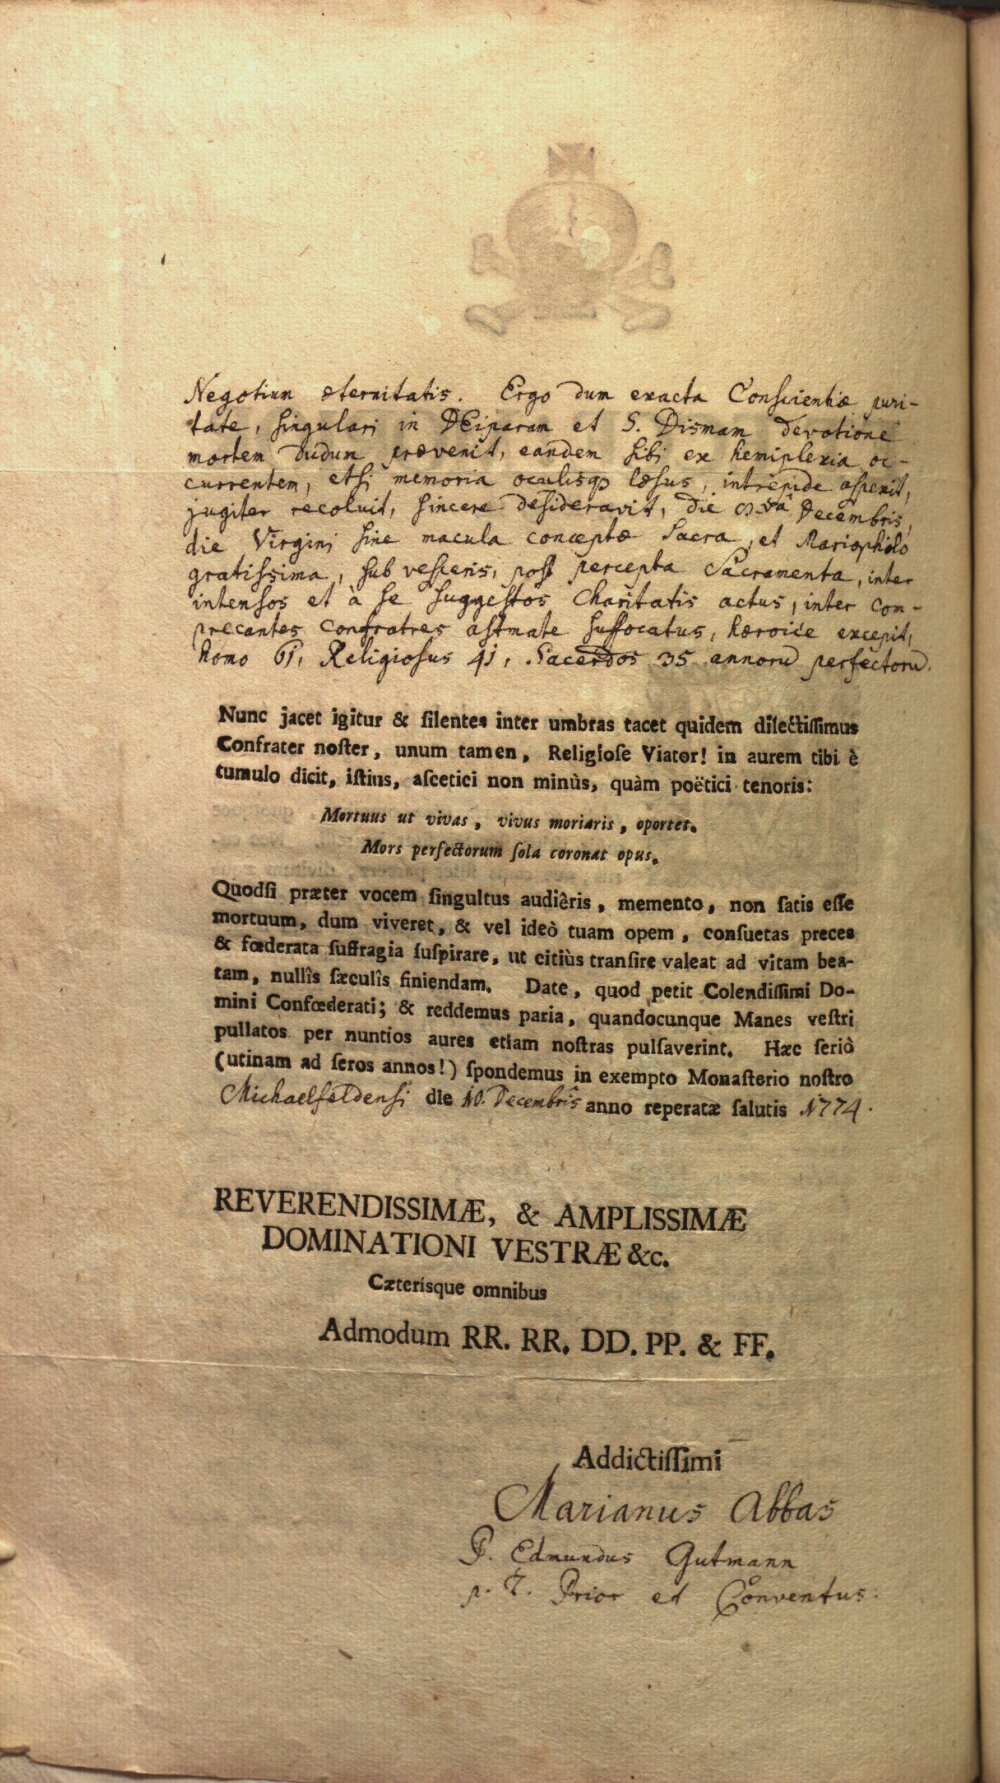 Negotium æternitatis. Ergo dum exacta Conscientiæ puri-
tate, singulari in DEiparam et S. Dismam devotione
mortem dudum prævenit, eandem sibi ex hemiplexia oc-
currentem, etsi memoria oculisqꝫ læsus, intrepide aspexit,
jugiter recoluit, sincere desideravit, die Decembris,
die Virgini sine macula conceptæ Sacra, et Mariophilo
gratissima, sub vesperis, post percepta Sacramenta, inter
intensos et à se suggestos Charitatis actus, inter com-
precantes confratres astmate suffocatus, hæroice excepit,
homo 61, Religiosus 41, Sacerdos 35 annorū perfectorū.
Nunc jacet igitur & silentes inter umbras tacet quidem dilectissimus
Confrater noster, unum tamen, Religiose Viator! in aurem tibi è
tumulo dicit, istius, ascetici non minùs, quàm poëtici tenoris:
Mortuus ut vivas, vivus moriaris, oportet.
Mors perfectorum sola coronat opus.
Quodsi præter vocem singultus audiêris, memento, non satis esse
mortuum, dum viveret, & vel ideò tuam opem, consuetas preces
& fœderata suffragia suspirare, ut citiùs transire valeat ad vitam bea-
tam, nullîs sæculîs finiendam. Date, quod petit Colendissimi Do-
mini Confœderati; & reddemus paria, quandocunque Manes vestri
pullatos per nuntios aures etiam nostras pulsaverint. Hæc seriò
(utinam ad seros annos!) spondemus in exempto Monasterio nostro
Michaelfeldensi die 10. Decembris anno reperatæ salutis 1774.
REVERENDISSIMÆ, & AMPLISSIMÆ
DOMINATIONI VESTRÆ &c.
Cæterísque omnibus
Admodum RR. RR. DD. PP. & FF.
Addictissimi
Marianus Abbas
P. Edmundus Gutmann
p. t. Prior et Conventus.